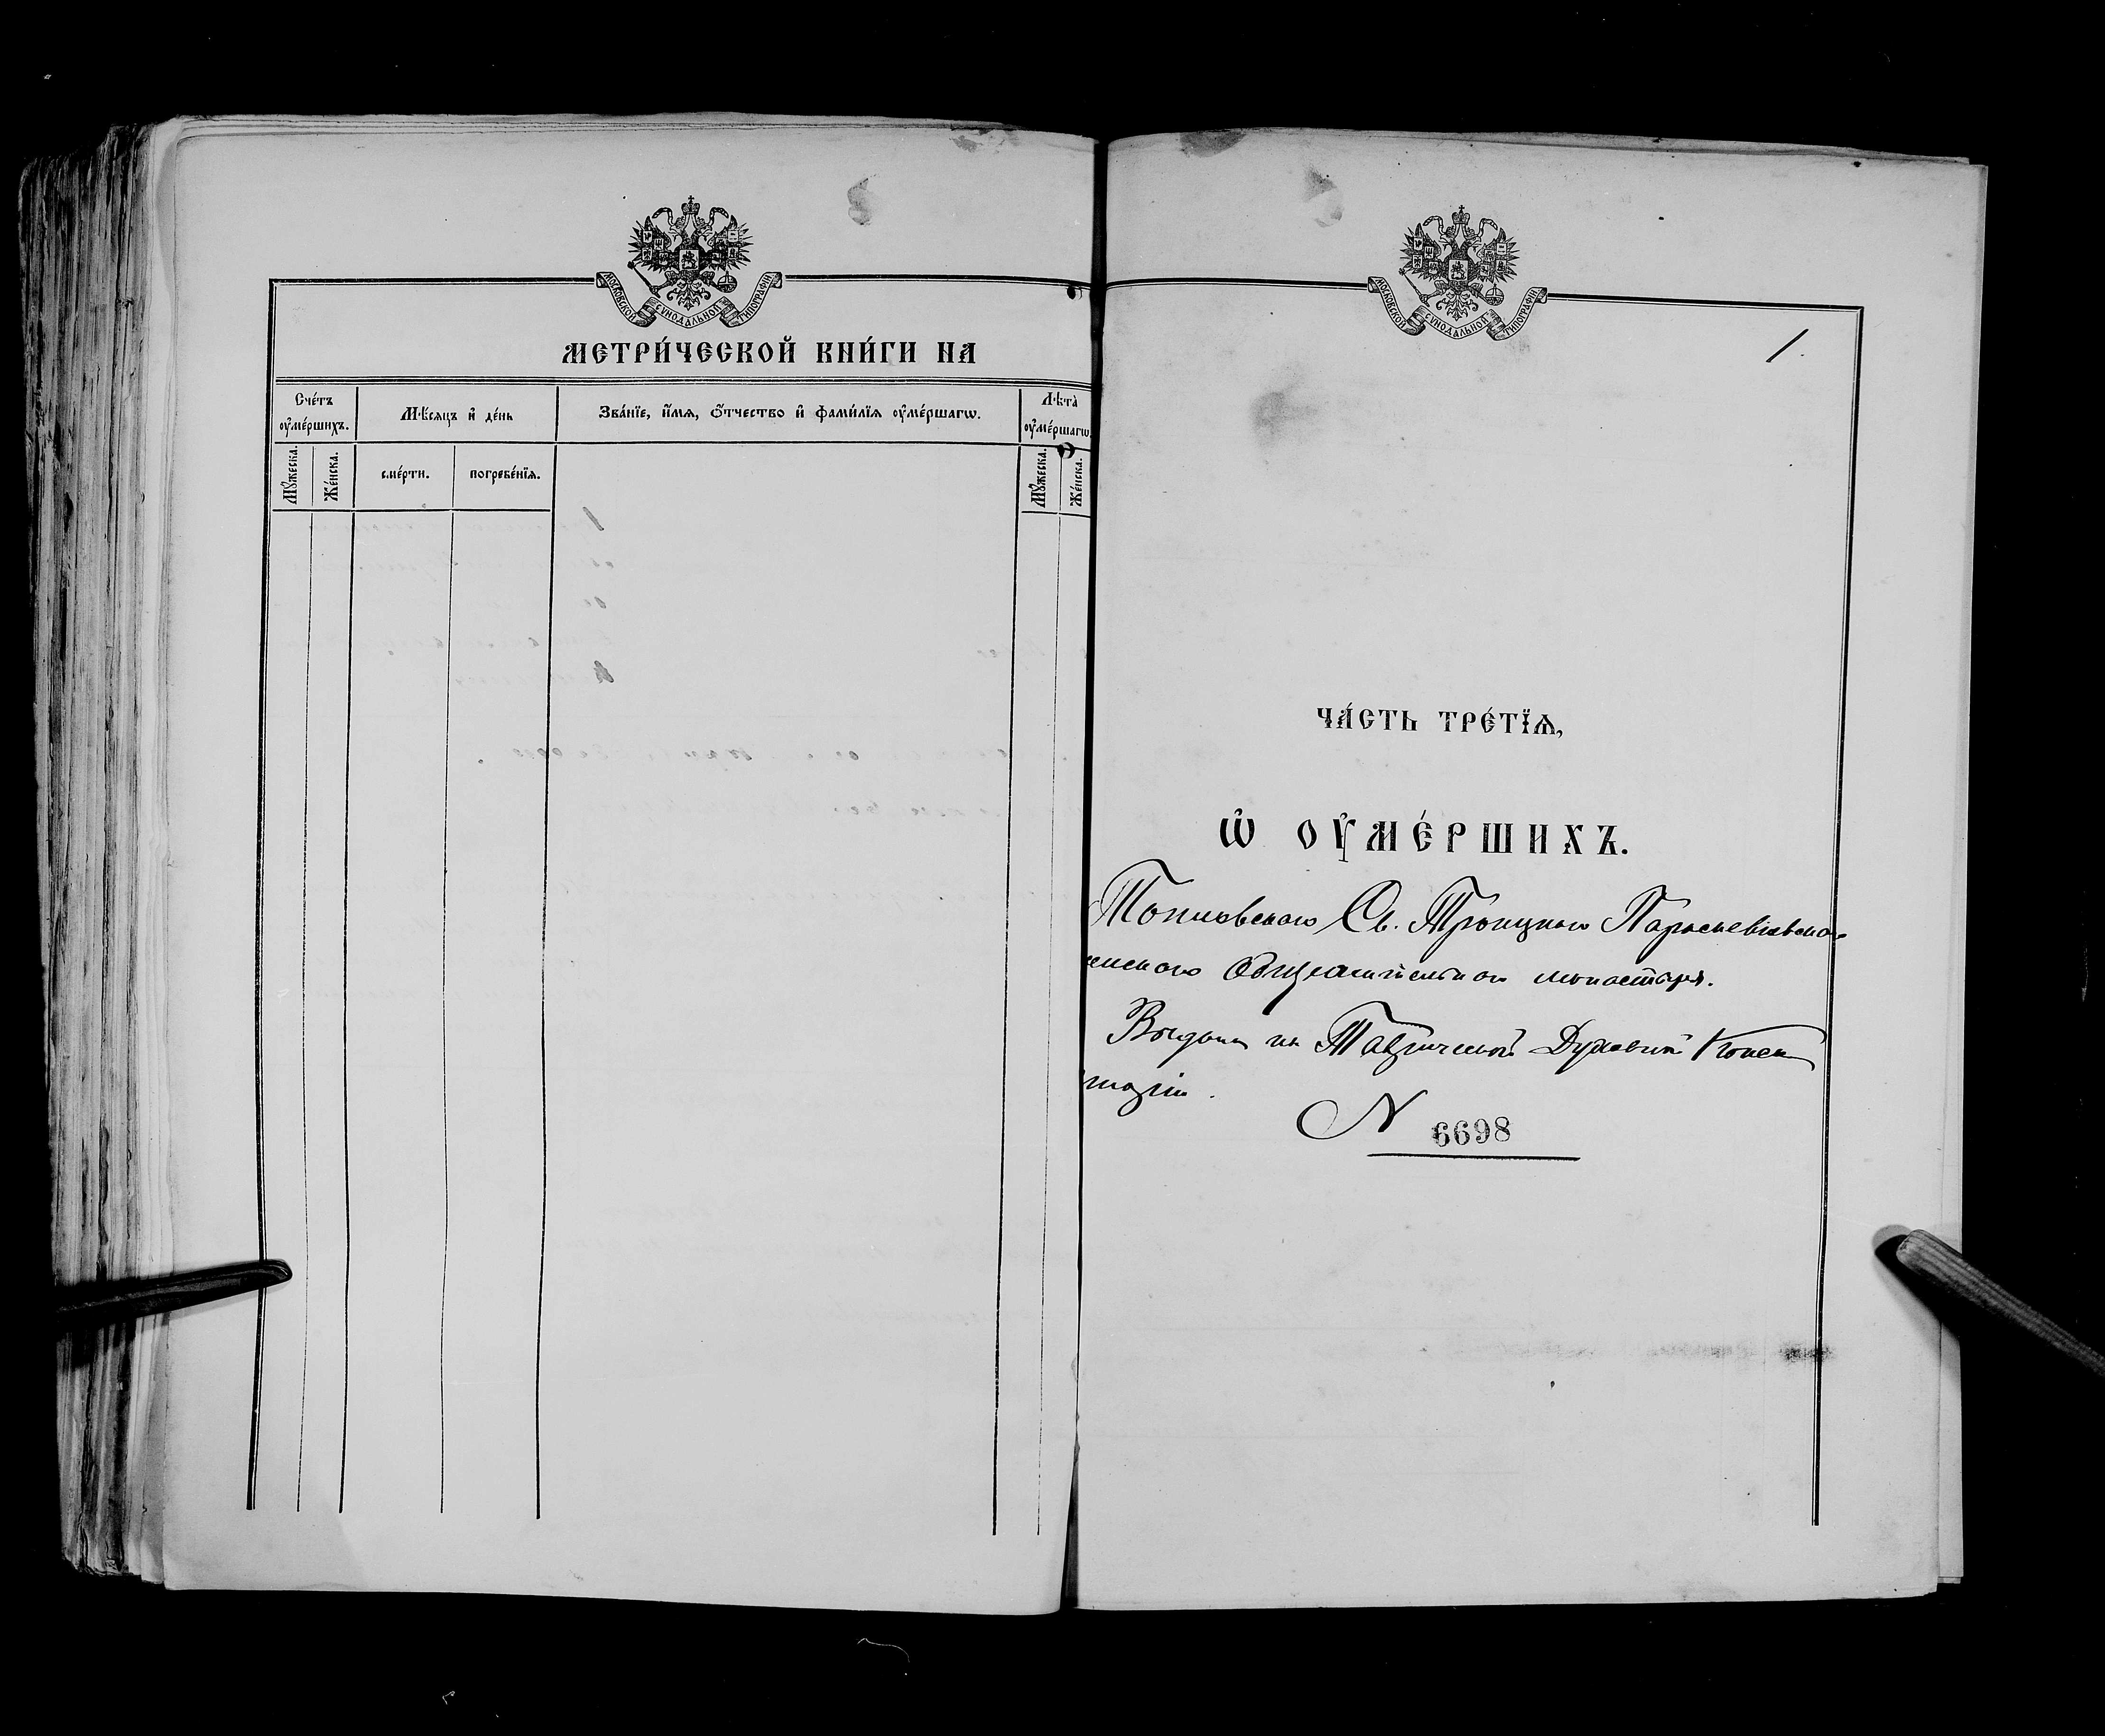 МОСКОВСКОЙ СѴНОДАЛЬНОЙ ТИПОГРАФІИ
МЕТРИ́ЧЕСКОЙ КНИ́ГИ НА
Сче́тъ ᲂу҆ме́ршихъ.
Мѣ́сяцъ и҆ де́нь
Зва́нїе, и҆́мѧ, ѻ҆́тчество и҆ фами́лїѧ ᲂу҆ме́ршагѡ.
Лѣ́та ᲂу҆ме́ршагѡ.
Мꙋ́жеска.
Же́нска.
сме́рти.
погребе́нїѧ.
Мꙋ́жеска.
Же́нска.
МОСКОВСКОЙ СѴНОДАЛЬНОЙ ТИПОГРАФІИ
1.
ЧА́СТЬ ТРЕ́ТЇѦ,
Ѡ҆ ОУ҆МЕ́РШИХЪ.
Топловскаго Св. Троицкаго Параскевіевска-
женскаго общежительнаго монастыря.
Выдана изъ Таврической Духовной Конси
торіи.
N 6698